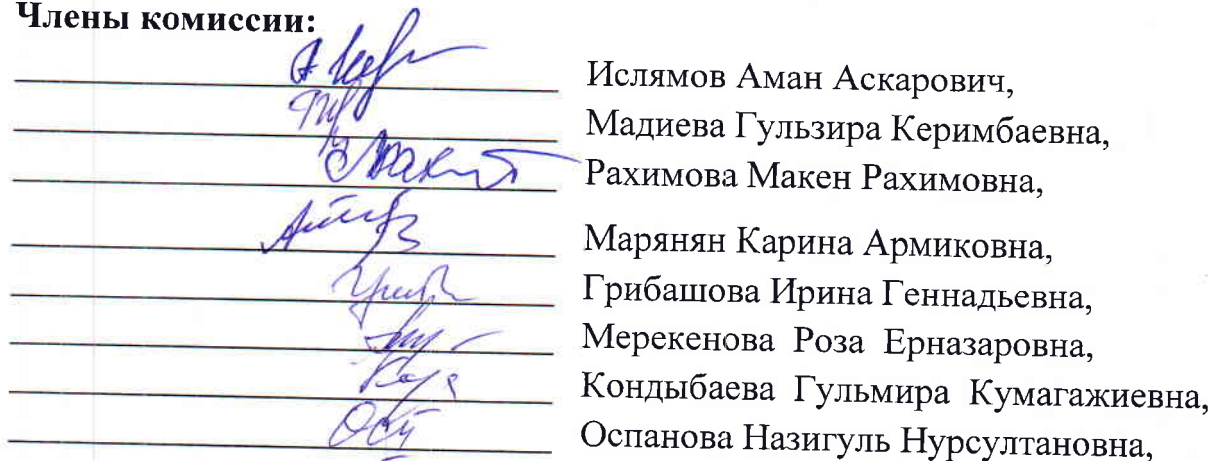 Члены комиссии:
Ислямов Аман Аскарович,
Мадиева Гульзира Керимбаевна,
Рахимова Макен Рахимовна,
Марянян Карина Армиковна,
Грибашова Ирина Геннадьевна,
Мерекенова Роза Ерназаровна,
Кондыбаева Гульмира Кумагажиевна,
Оспанова Назигуль Нурсултановна,